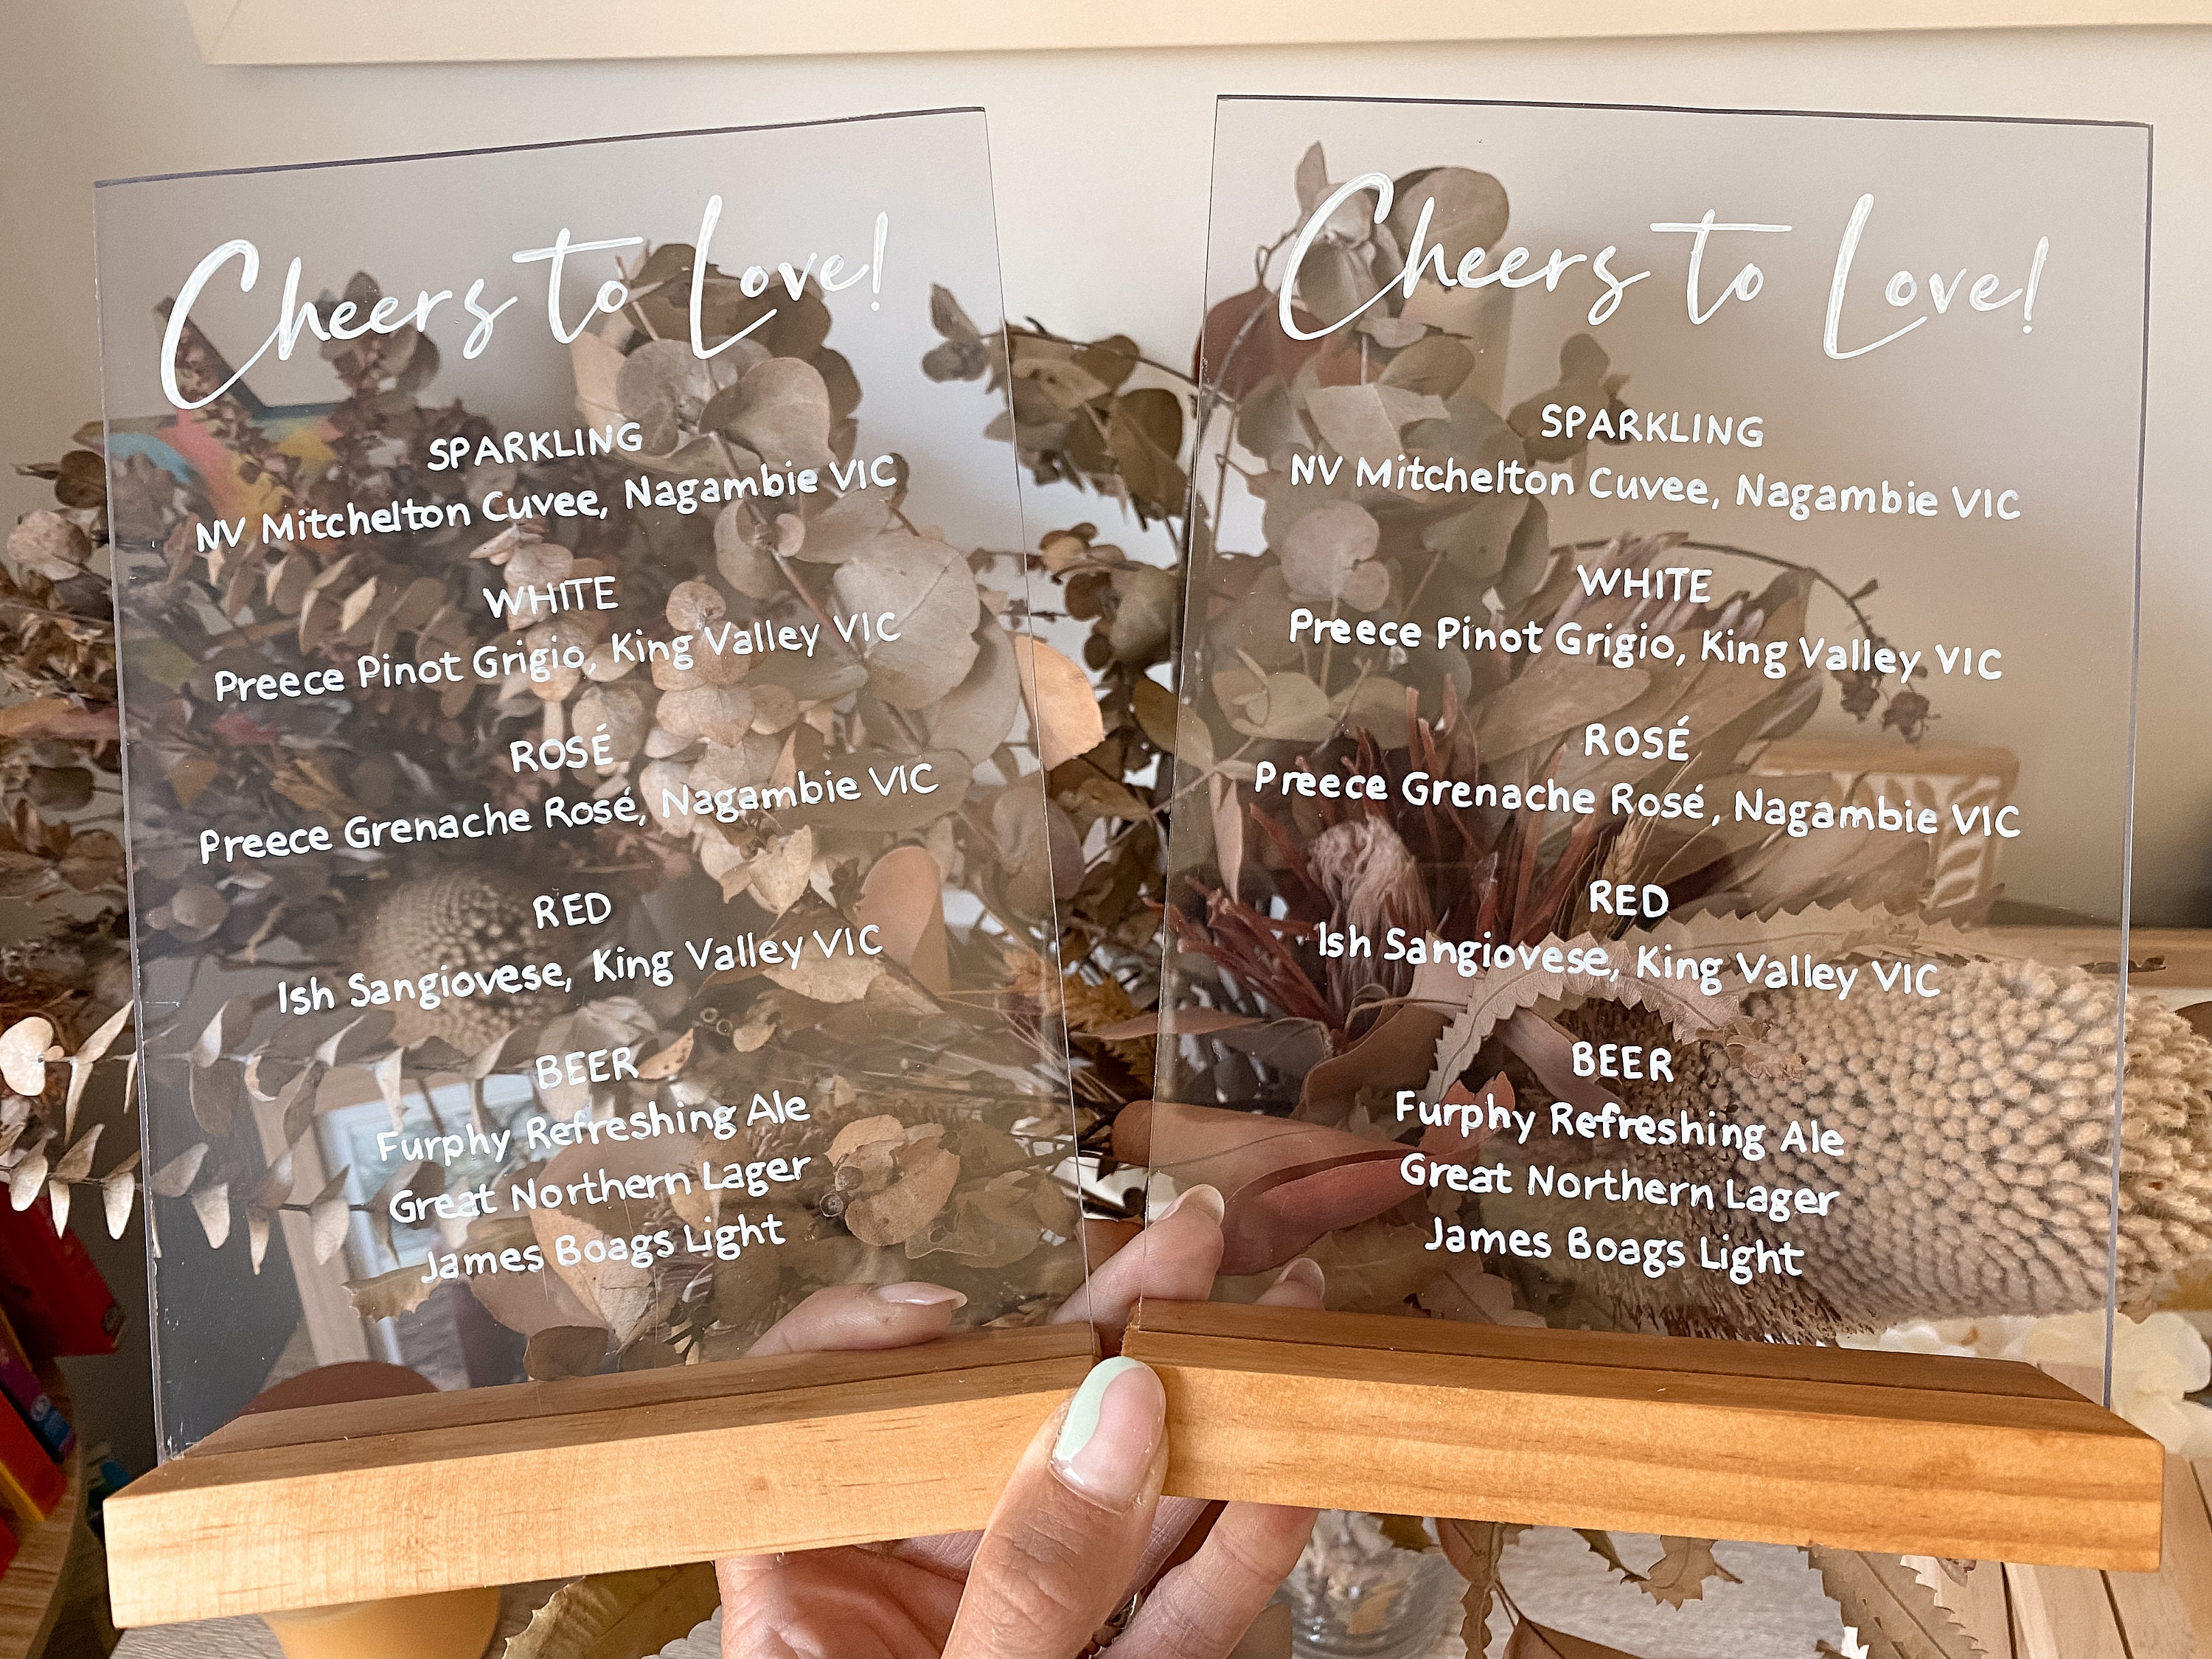 Cheers to Love!
SPARKLING
NV Mitchelton Cuvee, Nagambie VIC
WHITE
Preece Pinot Grigio, King Valley VIC
ROSÉ
Preece Grenache Rosé, Nagambie VIC
RED
Ish Sangiovese, King Valley VIC
BEER
Furphy Refreshing Ale
Great Northern Lager
James Boags Light
Cheers to Love!
SPARKLING
NV Mitchelton Cuvee, Nagambie VIC
WHITE
Preece Pinot Grigio, King Valley VIC
ROSÉ
Preece Grenache Rosé, Nagambie VIC
RED
Ish Sangiovese, King Valley VIC
BEER
Furphy Refreshing Ale
Great Northern Lager
James Boags Light